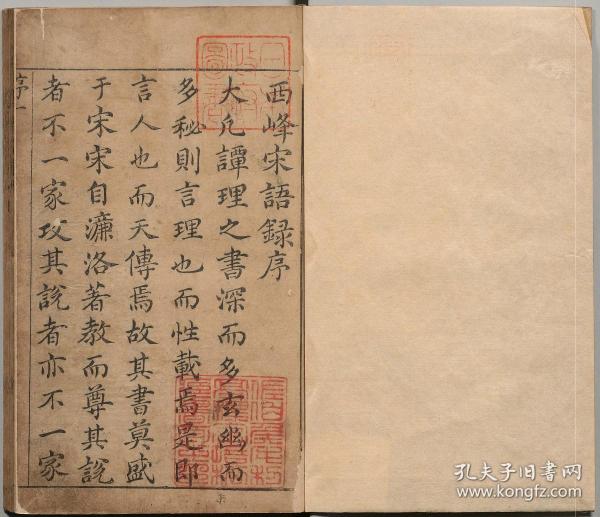 西峰宋語録序
大凡譚理之書深而多玄幽而
多秘則言理也而性載焉是即
言人也而天傳焉故其書莫盛
于宋宋自濂洛著教而尊其說
者不一家攻其說者亦不一家
序一
孔夫子旧书网
www.kongfz.com